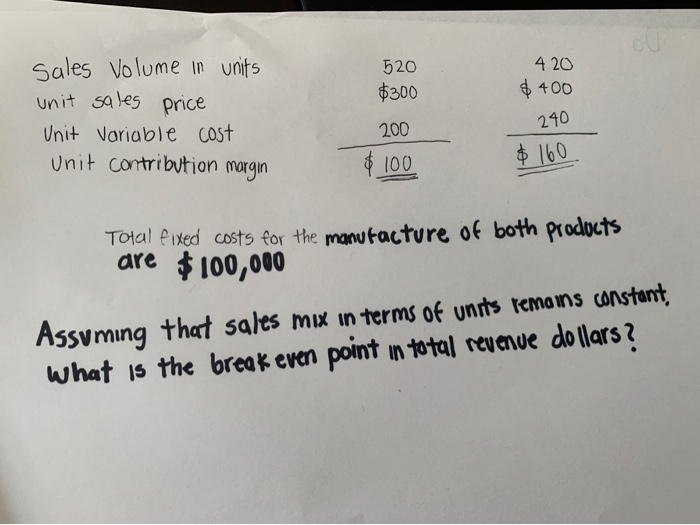 Sales Volume in units 520 420
unit sales price $300 $400
Unit Variable cost 200 240
Unit contribution margin $ 100 $ 160
Total fixed costs for the manufacture of both products
are $100,000
Assuming that sales mix in terms of units remains constant,
what is the break even point in total revenue dollars?